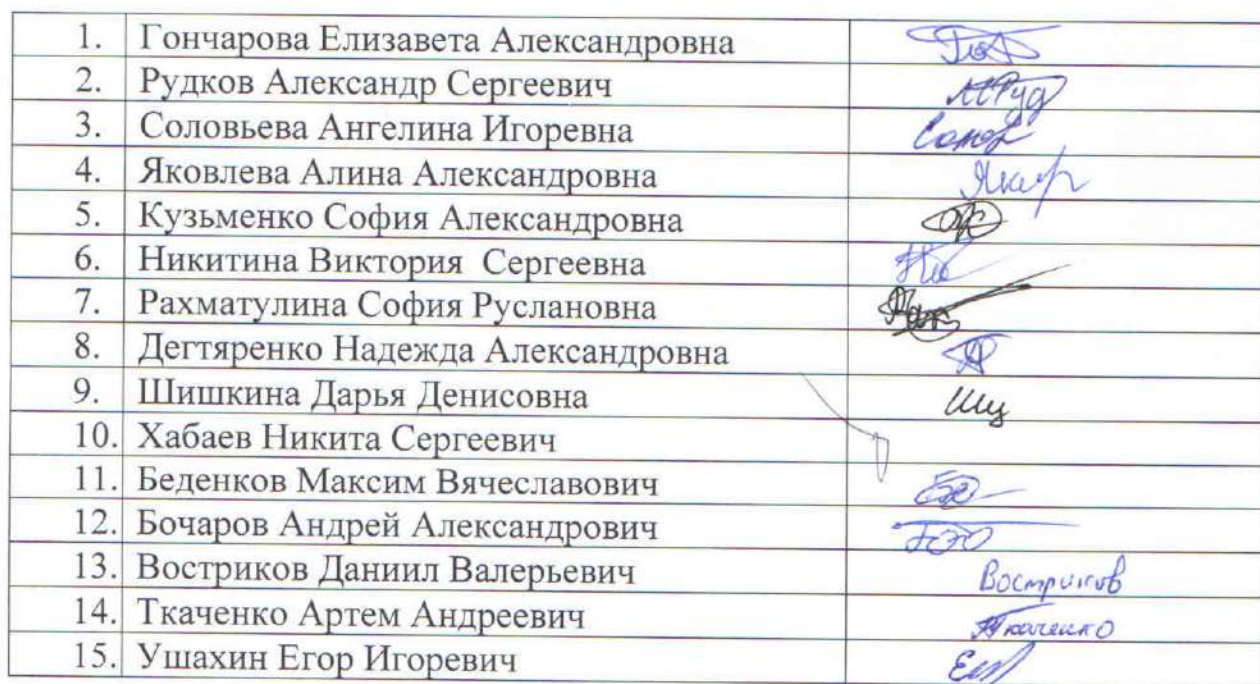 1. Гончарова Елизавета Александровна
2. Рудков Александр Сергеевич
3. Соловьева Ангелина Игоревна
4. Яковлева Алина Александровна
5. Кузьменко София Александровна
6. Никитина Виктория Сергеевна
7. Рахматулина София Руслановна
8. Дегтяренко Надежда Александровна
9. Шишкина Дарья Денисовна
10. Хабаев Никита Сергеевич
11. Беденков Максим Вячеславович
12. Бочаров Андрей Александрович
13. Востриков Даниил Валерьевич Востриков
14. Ткаченко Артем Андреевич Ткаченко
15. Ушахин Егор Игоревич